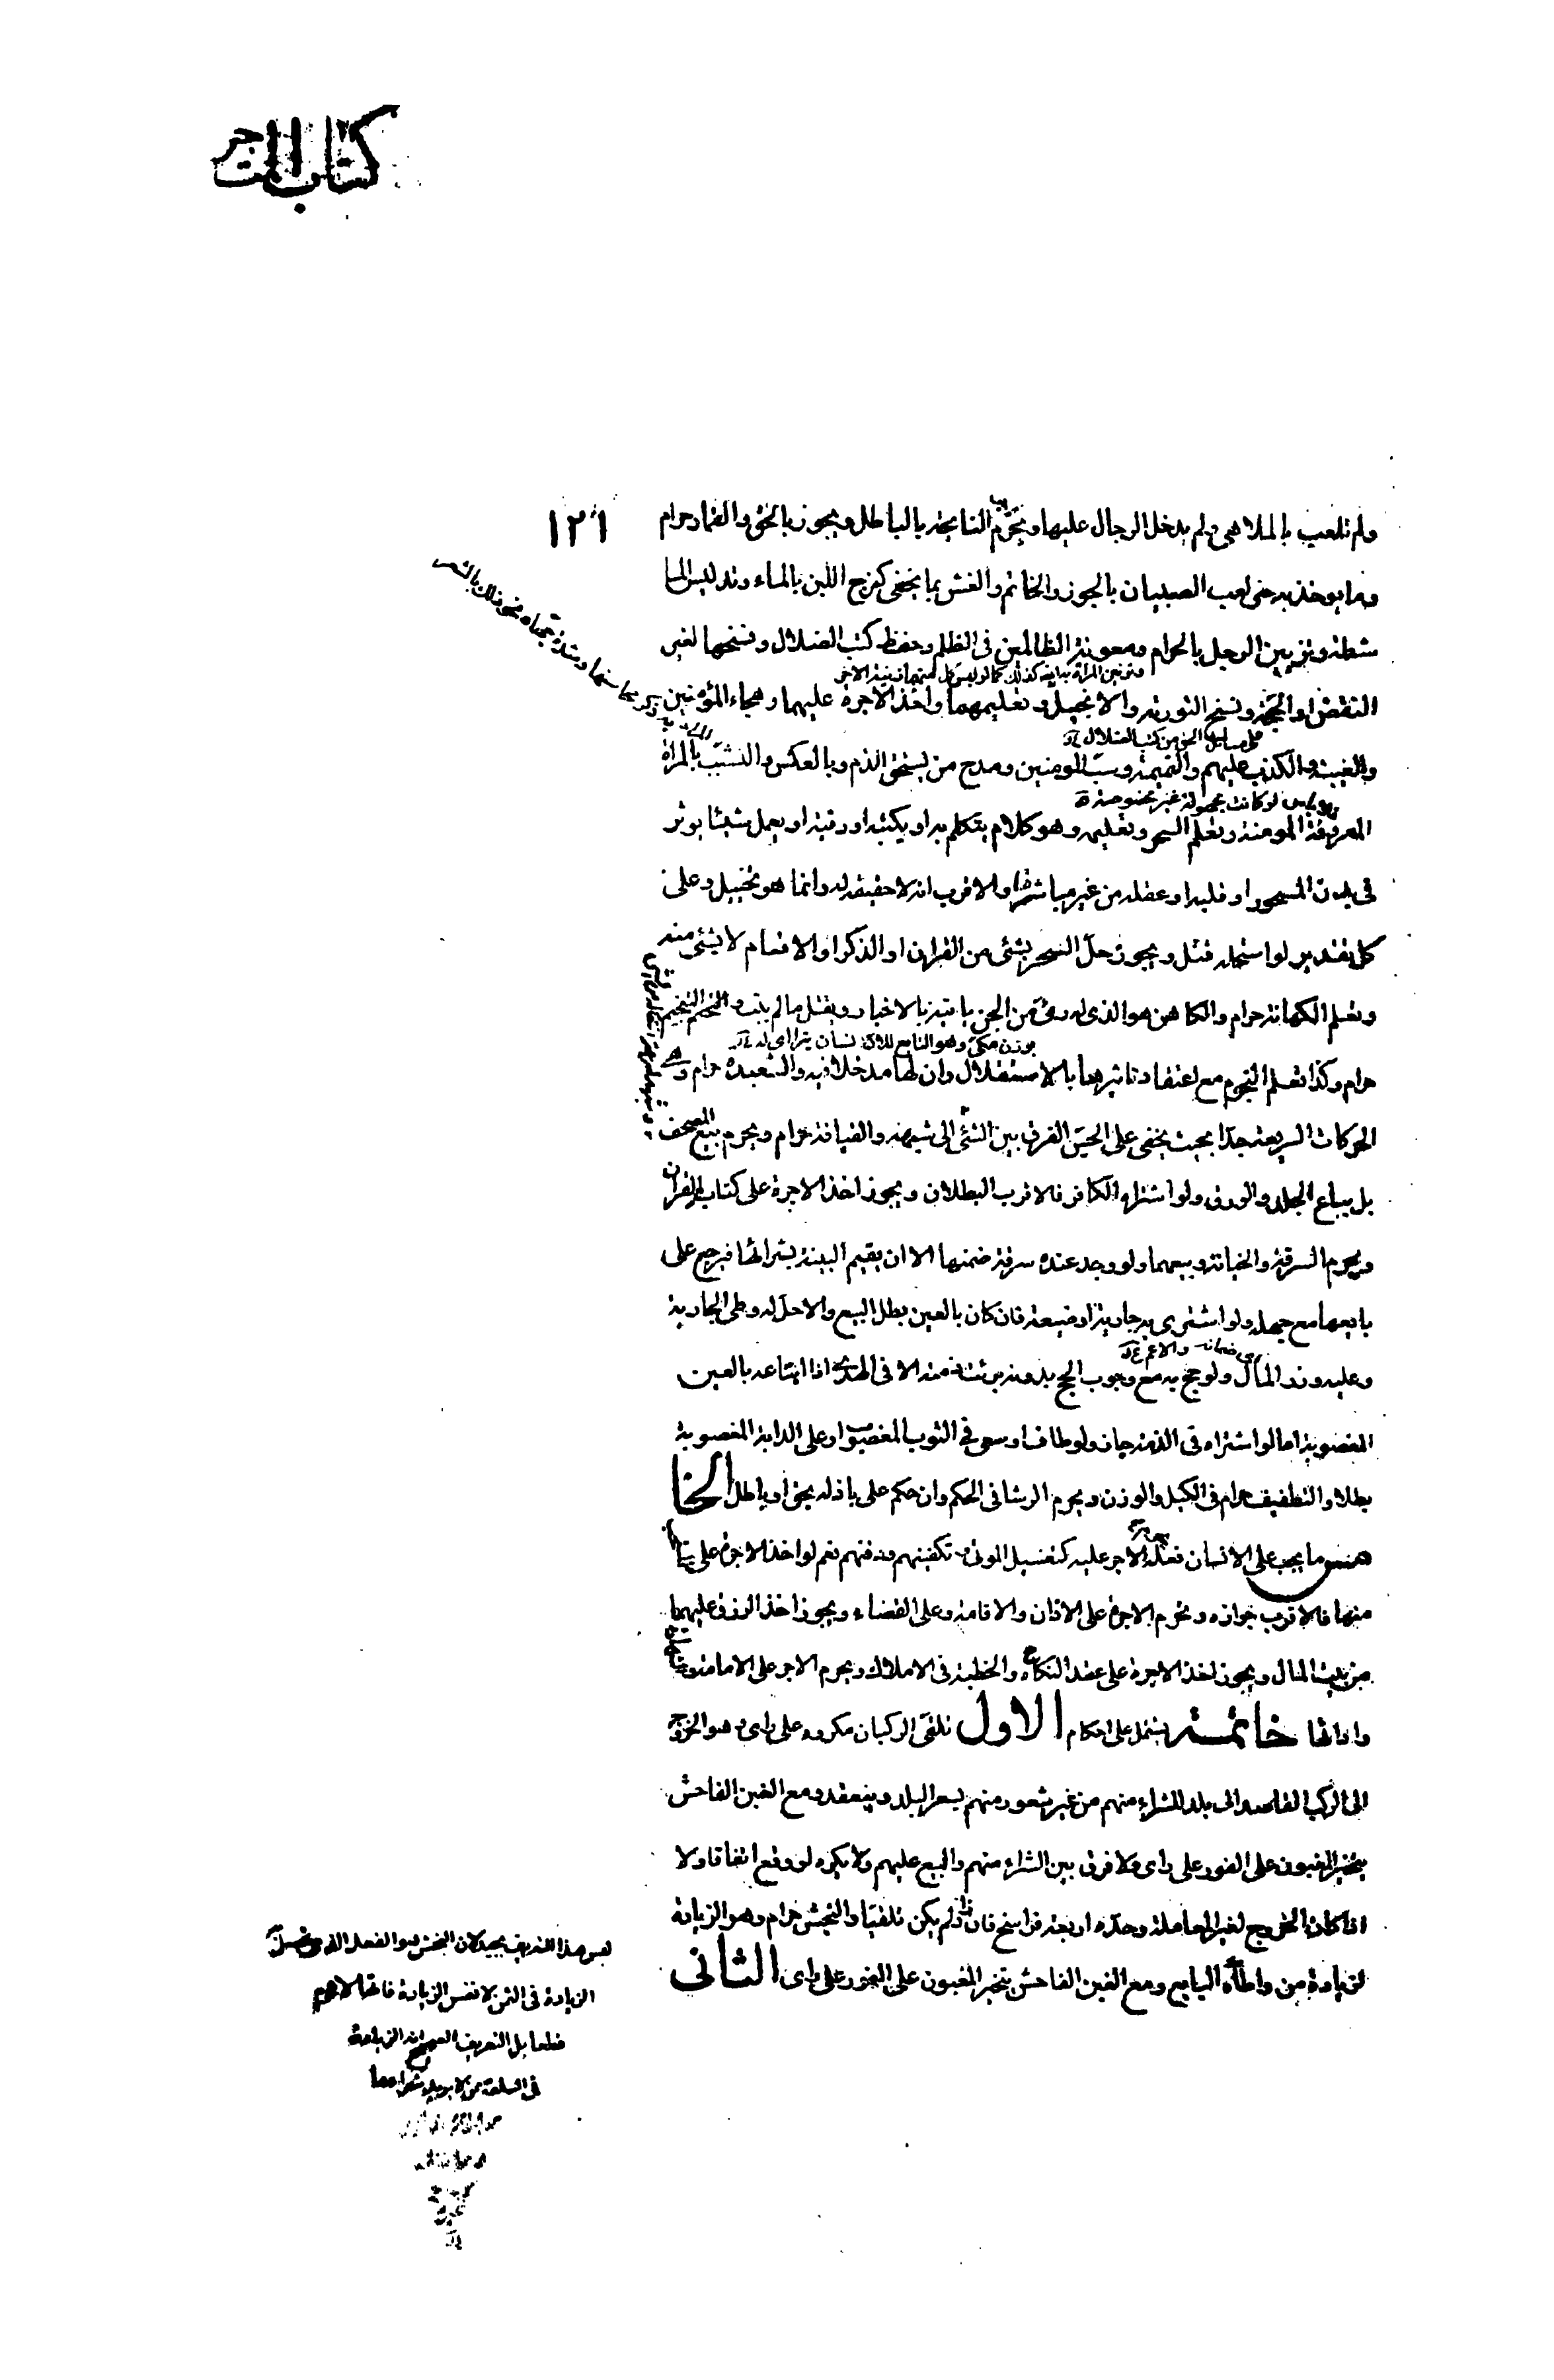 كتاب المتاجر
١٢٦
ولم تلعب بالملاهي ولم يدخل الرجال عليها ويحرم اجر النايحة بالباطل ويجوز بالحق والقمار حرام
وما يوخذ به حتى لعب الصبيان بالجوز والخاتم والغش بما يخفى كمزج اللبن بالماء وتدليس الما
شطة وتزيين الرجل بالحرام ومعونة الظالمين في الظلم وحفظ كتب الضلال ونسخها لغير
النقض او الحجة ونسخ التورية والانجيل وتعليمهما واخذ الاجرة عليهما وهجاء المؤمنين
والغيبة والكذب عليهم والنميمة وسب المومنين ومدح من يستحق الذم وبالعكس والتشبب بالمراة
ولا باس لو كانت مجهولة غير مخصوصة
المعروفة المومنة وتعلم السحر وتعليمه وهو كلام يتكلم به او يكتبه او رقية او يعمل شيئا يوثر
في بدن المسحور او قلبه او عقله من غير مباشرة والاقرب انه لا حقيقة له وانما هو تخييل وعلى
كل تقدير لو استحله قتل ويجوز حل السحر بشئ من القران او الذكر او الاقسام لا بشئ منه
وتعلم الكهانة حرام والكاهن هو الذي له رئي من الجن ياتيه بالاخبار ويقتل ما لم يتب والتنجيم
حرام وكذا تعلم النجوم مع اعتقاد تاثيرها بالاستقلال وان لها مدخلا فيه والشعبدة حرام وهي
الحركات السريعة جدا بحيث يخفى على الحس الفرق بين الشئ الى شبهه والقيافة حرام ويحرم بيع المصحف
بل يباع الجلد والورق ولو اشتراه الكافر فالاقرب البطلان ويجوز اخذ الاجرة على كتابة القران
ويحرم السرقة والخيانة وبيعهما ولو وجد عنده سرقة ضمنها الا ان يقيم البينة بشرائها فيرجع على
بايعها مع جهله ولو اشترى به جارية او ضيعة فان كان بالعين بطل البيع والا حل له وطي الجارية
وعليه وزر المال ولو حج به مع وجوب الحج بدونه برئت ذمته الا في الهدي اذا ابتاعه بالعين
المغصوبة اما لو اشتراه في الذمة جاز ولو طاف او سعى في الثوب المغصوب او على الدابة المغصوبة
بطلا والتطفيف حرام في الكيل والوزن ويحرم الرشا في الحكم وان حكم على باذله بحق او باطل الخا
مس ما يجب على الانسان فعله يحرم الاجر عليه كتغسيل الموتى وتكفينهم ودفنهم نعم لو اخذ الاجرة على
منها فالاقرب جوازه وتحرم الاجرة على الاذان والاقامة وعلى القضاء ويجوز اخذ الرزق عليهما
من بيت المال ويجوز اخذ الاجرة على عقد النكاح والخطبة في الاملاك ويحرم الاجر على الامامة
وادائها خاتمة تشتمل على احكام الاول تلقي الركبان مكروه على راى وهو الخروج
الى الركب القاصد الى بلد للشراء منهم من غير شعور منهم بسعر البلد وينعقد ومع الغبن الفاحش
يتخير المغبون على الفور على راى ولا فرق بين الشراء منهم والبيع عليهم ولا يكره لو وقع اتفاقا ولا
اذا كان الخروج لغير المعاملة وحده اربعة فراسخ فان زاد لم يكن تلقيا والنجش حرام وهو الزيادة
لزيادة من واطاه البايع ومع الغبن الفاحش يتخير المغبون على الفور على راى الثاني
ليس هذا التعريف بجيد لان النجش هو الفعل
الزيادة في الثمن لا نفس الزيادة فانها لا تحرم
قطعا بل التعريف الصحيح انه الزيادة
في السلعة ممن لا يريد شراءها